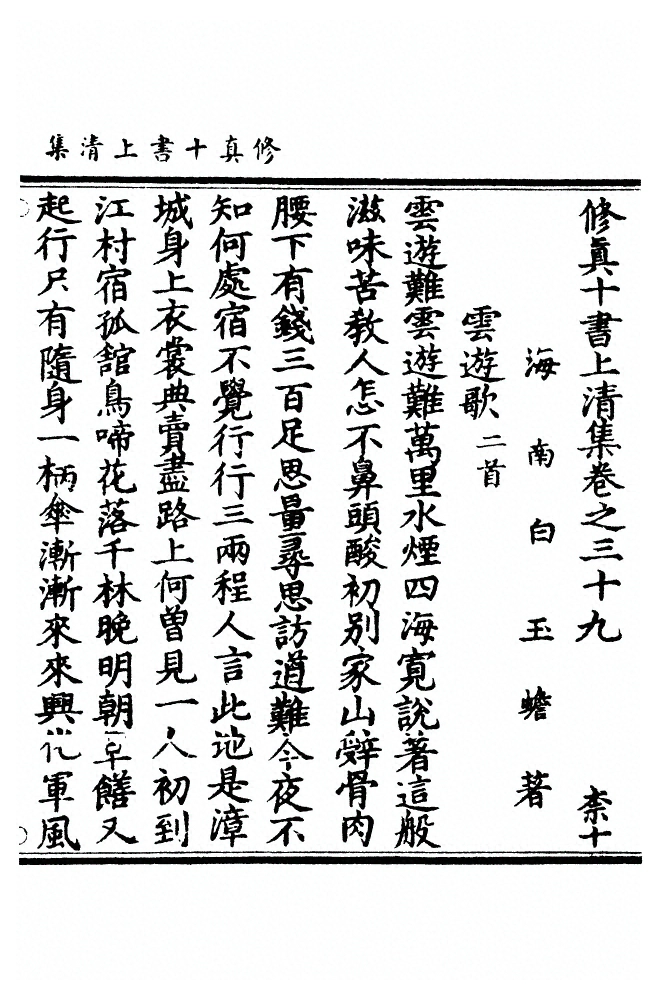 修真十書上清集
修眞十書上清集卷之三十九 柰十
海南白玉蟾著
雲遊歌 二首
雲遊難雲遊難萬里水煙四海寬說著這般
滋味苦教人怎不鼻頭酸初別家山辭骨肉
腰下有錢三百足思量尋思訪道難今夜不
知何處宿不覺行行三兩程人言此地是漳
城身上衣裳典賣盡路上何曾見一人初到
江村宿孤舘鳥啼花落千林晚明朝早饍又
起行只有隨身一柄傘漸漸來來興化軍風